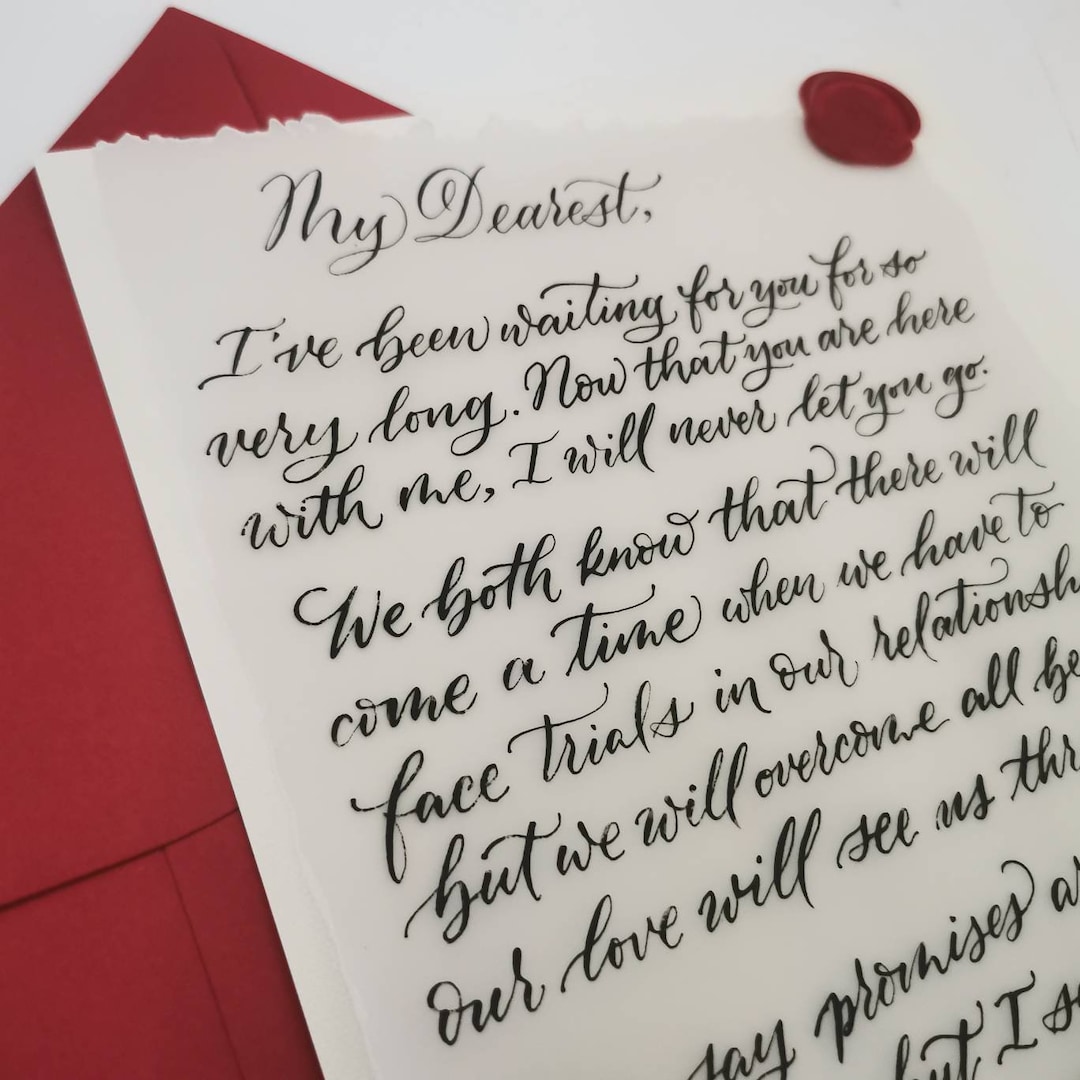 My Dearest,
I've been waiting for you for so
very long. Now that you are here
with me, I will never let you go.
We both know that there will
come a time when we have to
face trials in our relationsh
but we will overcome all be
our love will see us thr
say promises a
but I s